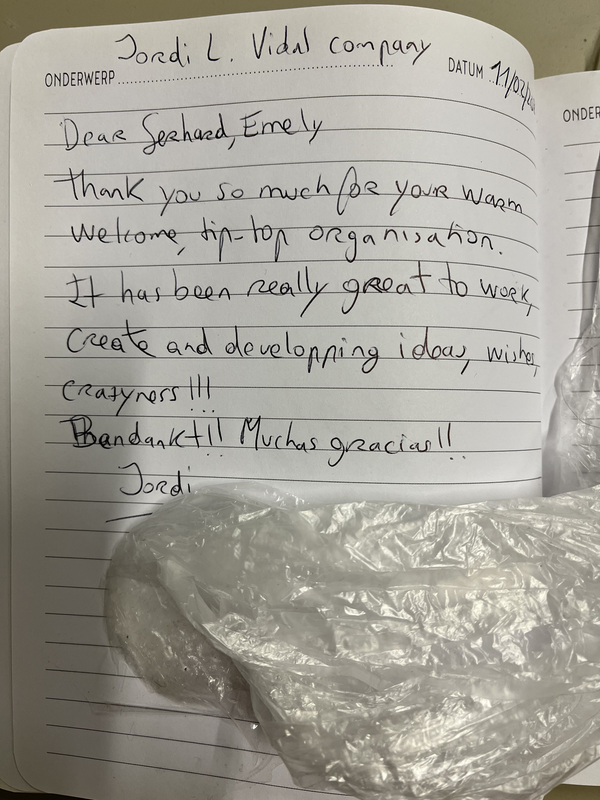 Jordi L. Vidal company
ONDERWERP
DATUM 11/02/
ONDER
Dear Gerhard, Emely
thank you so much for your warm
Welcome, tip-top organisation.
It has been really great to work,
Create and developping ideas, wishes,
crazyness!!!
Bendankt!! Muchas gracias!!
Jordi